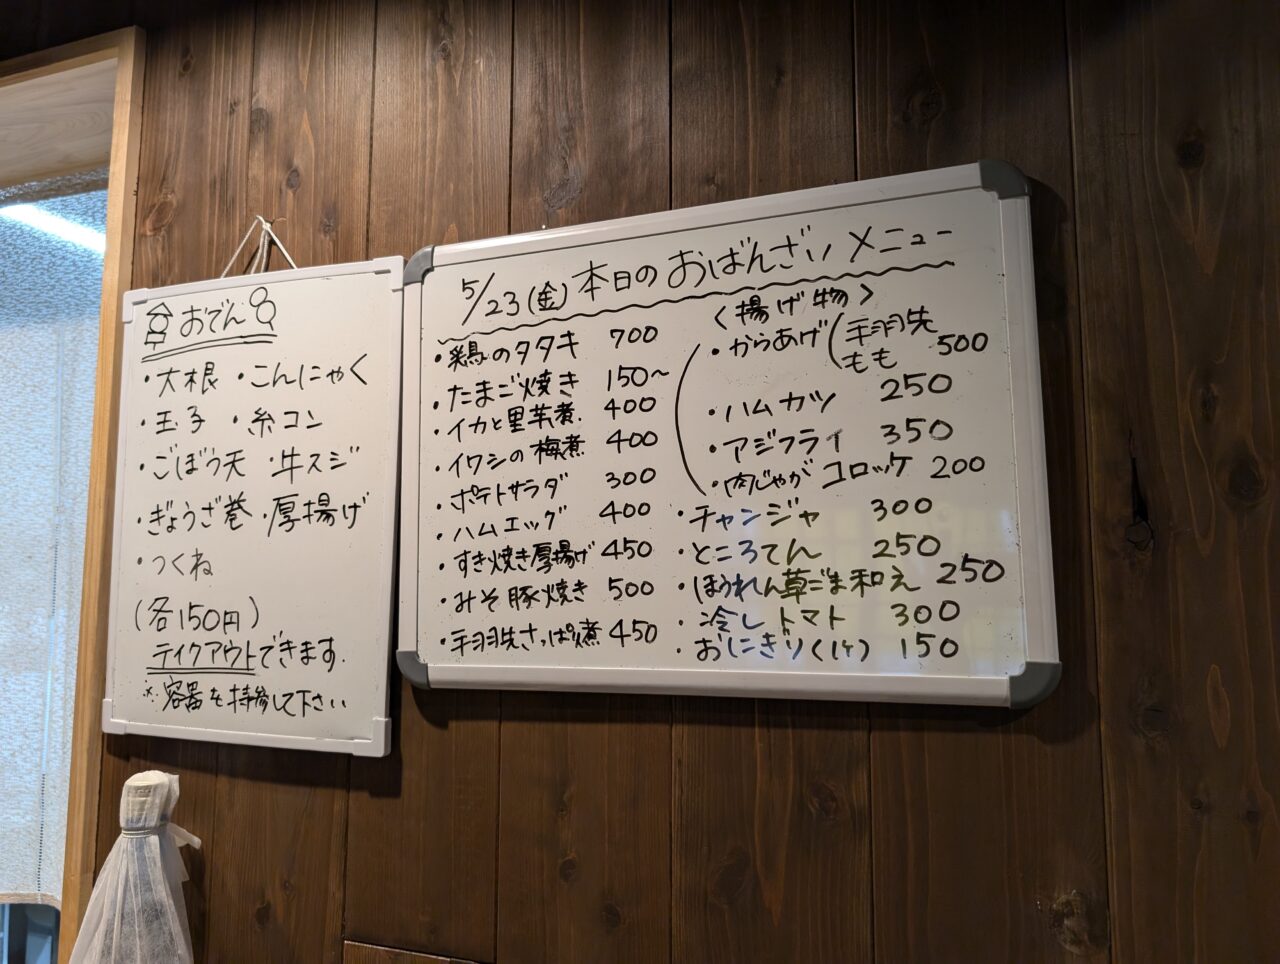 おでん
・大根 ・こんにゃく
・玉子 ・糸コン
・ごぼう天 ・牛スジ
・ぎょうざ巻 ・厚揚げ
・つくね
(各150円)
テイクアウトできます.
※容器を持参して下さい
5/23(金) 本日のおばんざいメニュー
・鶏のタタキ 700
・たまご焼き 150〜
・イカと里芋煮. 400
・イワシの梅煮 400
・ポテトサラダ 300
・ハムエッグ 400
・すき焼き厚揚げ 450
・みそ豚焼き 500
・手羽先さっぱり煮 450
<揚げ物>
・からあげ(手羽先 もも 500
・ハムカツ 250
・アジフライ 350
・肉じゃがコロッケ 200
・チャンジャ 300
・ところてん 250
・ほうれん草ごま和え 250
・冷しトマト 300
・おにぎり(1ケ) 150